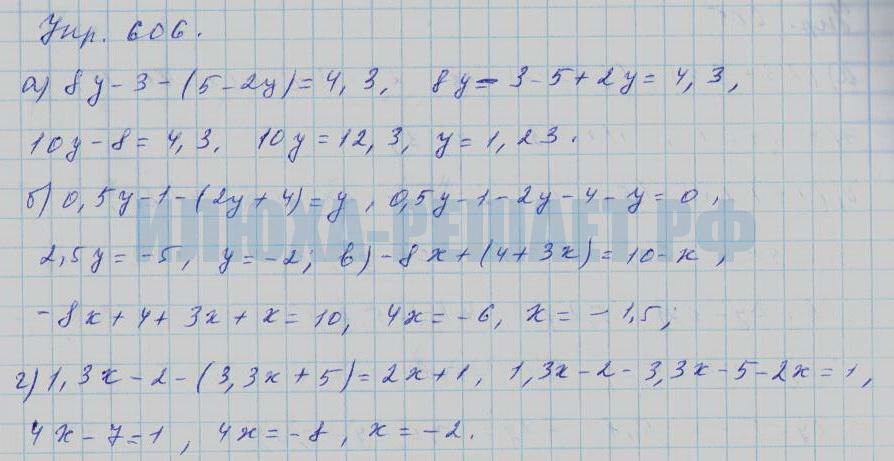 Упр. 606.
а) 8y - 3 - (5 - 2y) = 4,3, 8y - 3 - 5 + 2y = 4,3,
10y - 8 = 4,3, 10y = 12,3, y = 1,23.
б) 0,5y - 1 - (2y + 4) = y, 0,5y - 1 - 2y - 4 - y = 0,
ИЛЮХА-РЕШАЕТ.РФ
2,5y = -5, y = -2; в) -8x + (4 + 3x) = 10 - x,
-8x + 4 + 3x + x = 10, 4x = -6, x = -1,5;
г) 1,3x - 2 - (3,3x + 5) = 2x + 1, 1,3x - 2 - 3,3x - 5 - 2x = 1,
4x - 7 = 1, 4x = -8, x = -2.